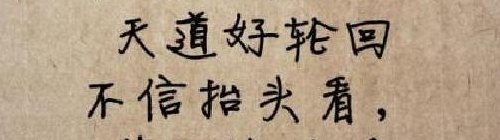 天道好轮回
不信抬头看，